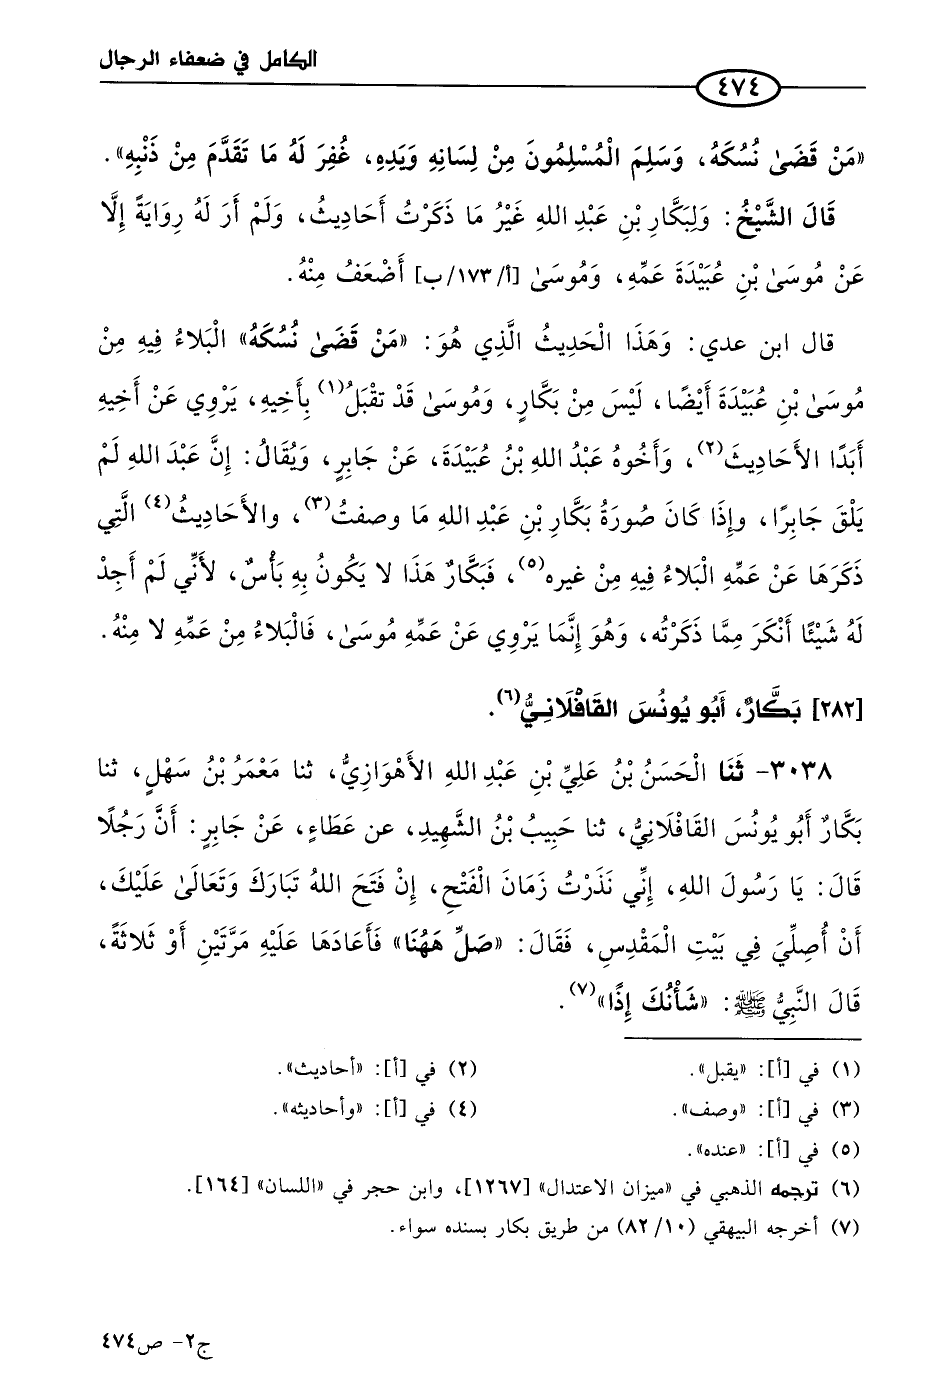 الكامل في ضعفاء الرجال
٤٧٤
«مَنْ قَضَىٰ نُسُكَهُ، وَسَلِمَ الْمُسْلِمُونَ مِنْ لِسَانِهِ وَيَدِهِ، غُفِرَ لَهُ مَا تَقَدَّمَ مِنْ ذَنْبِهِ».
قَالَ الشَّيْخُ: وَلِبَكَّارِ بْنِ عَبْدِ اللهِ غَيْرُ مَا ذَكَرْتُ أَحَادِيثُ، وَلَمْ أَرَ لَهُ رِوَايَةً إِلَّا
عَنْ مُوسَىٰ بْنِ عُبَيْدَةَ عَمِّهِ، وَمُوسَىٰ [أ/١٧٣/ب] أَضْعَفُ مِنْهُ.
قال ابن عدي: وَهَذَا الْحَدِيثُ الَّذِي هُوَ: «مَنْ قَضَىٰ نُسُكَهُ» الْبَلاءُ فِيهِ مِنْ
مُوسَىٰ بْنِ عُبَيْدَةَ أَيْضًا، لَيْسَ مِنْ بَكَّارٍ، وَمُوسَىٰ قَدْ تقْبَلُ(١) بِأَخِيهِ، يَرْوِي عَنْ أَخِيهِ
أَبَدًا الأَحَادِيثَ(٢)، وَأَخُوهُ عَبْدُ اللهِ بْنُ عُبَيْدَةَ، عَنْ جَابِرٍ، وَيُقَالُ: إِنَّ عَبْدَ اللهِ لَمْ
يَلْقَ جَابِرًا، وإِذَا كَانَ صُورَةُ بَكَّارِ بْنِ عَبْدِ اللهِ مَا وصفتُ(٣)، والأَحَادِيثُ(٤) الَّتِي
ذَكَرَهَا عَنْ عَمِّهِ الْبَلاءُ فِيهِ مِنْ غيره(٥)، فَبَكَّارٌ هَذَا لا يَكُونُ بِهِ بَأْسٌ، لأَنِّي لَمْ أَجِدْ
لَهُ شَيْئًا أَنْكَرَ مِمَّا ذَكَرْتُه، وَهُوَ إِنَّمَا يَرْوِي عَنْ عَمِّهِ مُوسَىٰ، فَالْبَلاءُ مِنْ عَمِّهِ لا مِنْهُ.
[٢٨٢] بَكَّارٌ، أَبُو يُونُسَ القَافْلَانِيُّ(٦).
٣٠٣٨- ثَنَا الْحَسَنُ بْنُ عَلِيِّ بْنِ عَبْدِ اللهِ الأَهْوَازِيُّ، ثنا مَعْمَرُ بْنُ سَهْلٍ، ثنا
بَكَّارٌ أَبُو يُونُسَ القَافْلانِيُّ، ثنا حَبِيبُ بْنُ الشَّهِيدِ، عن عَطَاءٍ، عَنْ جَابِرٍ: أَنَّ رَجُلًا
قَالَ: يَا رَسُولَ اللهِ، إِنِّي نَذَرْتُ زَمَانَ الْفَتْحِ، إِنْ فَتَحَ اللهُ تَبَارَكَ وَتَعَالَىٰ عَلَيْكَ،
أَنْ أُصِلِّيَ فِي بَيْتِ الْمَقْدِسِ، فَقَالَ: «صَلِّ هَهُنَا» فَأَعَادَهَا عَلَيْهِ مَرَّتَيْنِ أَوْ ثَلاثَةً،
قَالَ النَّبِيُّ ﷺ: «شَأْنُكَ إِذًا»(٧).
(١) في [أ]: «يقبل».
(٢) في [أ]: «أحاديث».
(٣) في [أ]: «وصف».
(٤) في [أ]: «وأحاديثه».
(٥) في [أ]: «عنده».
(٦) ترجمه الذهبي في «ميزان الاعتدال» [١٢٦٧]، وابن حجر في «اللسان» [١٦٤].
(٧) أخرجه البيهقي (١٠/ ٨٢) من طريق بكار بسنده سواء.
ج٢- ص٤٧٤